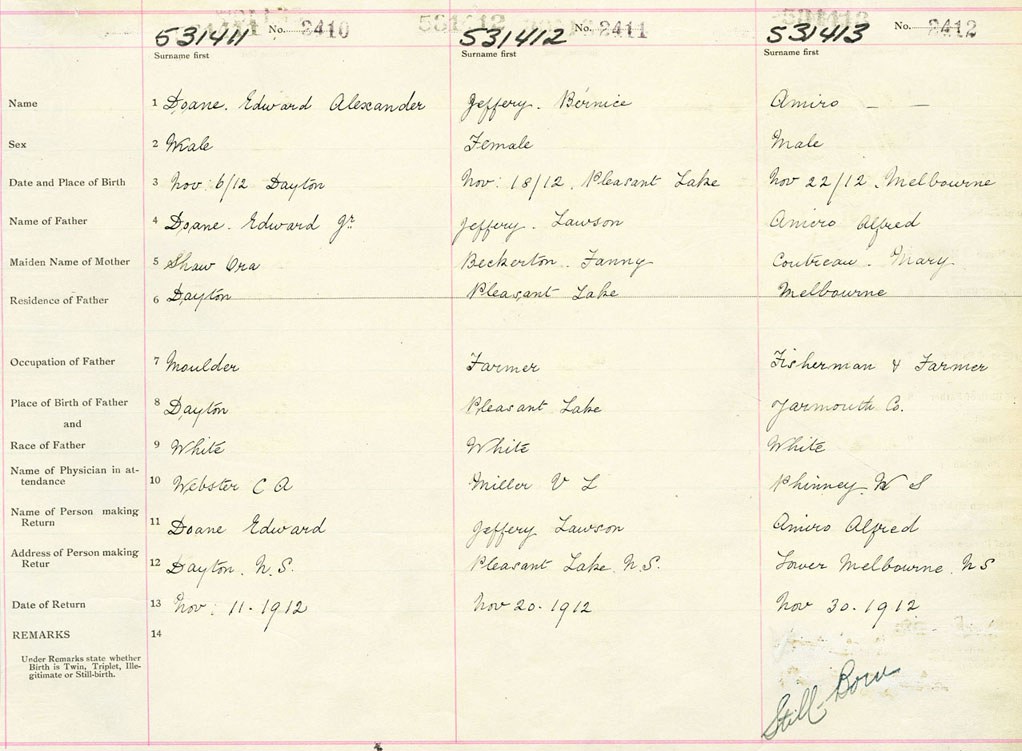 531411 No. 2410 531412 No. 2411 531413 No. 2412
Surname first Surname first Surname first
Name 1 Doane. Edward Alexander Jeffery. Bernice Amiro — —
Sex 2 Male Female Male
Date and Place of Birth 3 Nov: 6/12 Dayton Nov: 18/12. Pleasant Lake Nov 22/12. Melbourne
Name of Father 4 Doane. Edward Jr. Jeffery. Lawson Amiro Alfred
Maiden Name of Mother 5 Shaw Ora Beckerton. Fanny Coutreau. Mary
Residence of Father 6 Dayton Pleasant Lake Melbourne
Occupation of Father 7 Moulder Farmer Fisherman & Farmer
Place of Birth of Father 8 Dayton Pleasant Lake Yarmouth Co.
and
Race of Father 9 White White White
Name of Physician in at-
tendance 10 Webster C A Miller V L Phinney W S
Name of Person making
Return 11 Doane Edward Jeffery Lawson Amiro Alfred
Address of Person making
Retur 12 Dayton. N.S. Pleasant Lake. N.S. Lower Melbourne. NS
Date of Return 13 Nov: 11-1912 Nov 20-1912 Nov 30-1912
REMARKS 14
Under Remarks state whether
Birth is Twin, Triplet, Ille-
gitimate or Still-birth.
Still Born